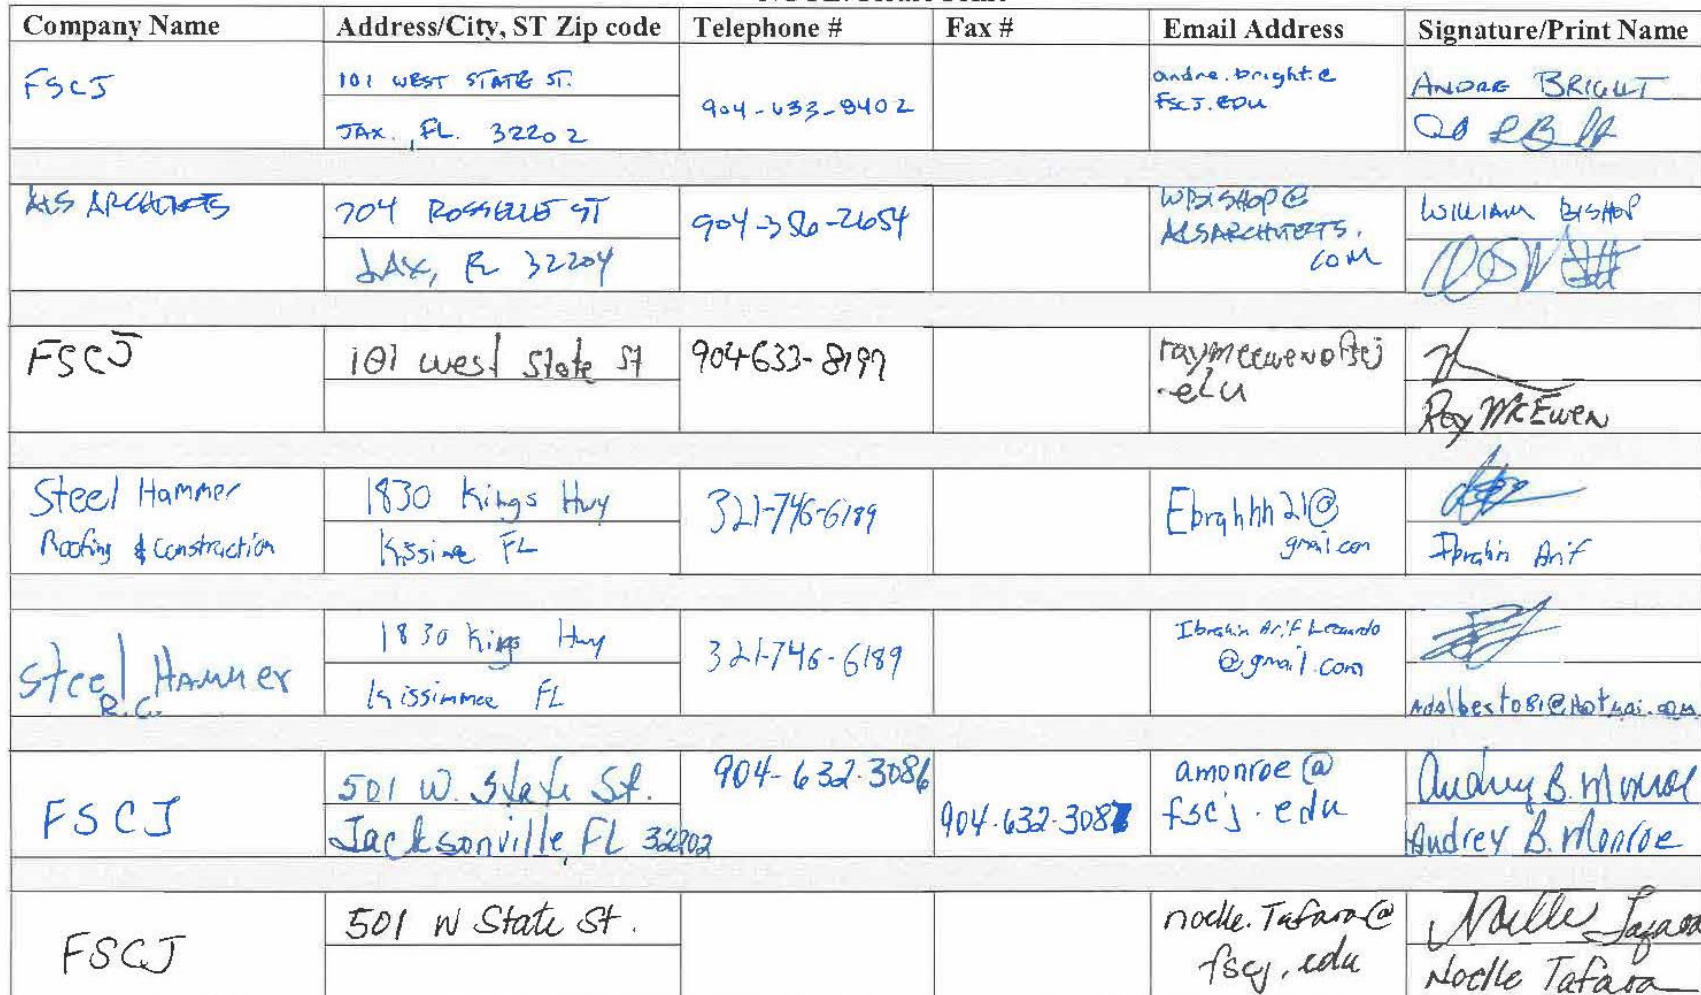 Company Name Address/City, ST Zip code Telephone # Fax # Email Address Signature/Print Name
FSCJ
101 WEST STATE ST.
JAX., FL. 32202
904-633-8402
andre.bright@
FSCJ.EDU
ANDRE BRIGHT
ALS ARCHITECTS
704 ROSSELLE ST
JAX, FL 32204
904-356-2654
WBISHOP@
ALSARCHITECTS.
COM
WILLIAM BISHOP
FSCJ
101 west State St
904633-8197
Ray McEwen
Steel Hammer
Roofing & Construction
1830 Kings Hwy
FL
321-746-6189
Ebrahhh21@
gmail.com
Ibrahim Arif
Steel Hammer
R.C.
1830 Kings Hwy
Kissimmee FL
321-746-6189
Ibrahim Arif
@gmail.com
Adalberto81@Hotmai.com
FSCJ
501 W. State St.
Jacksonville, FL 32202
904-632-3086
904-632-3087
amonroe@
fscj.edu
Audrey B. Monroe
Audrey B. Monroe
FSCJ
501 W State St.
noelle.Tafara@
fscj.edu
Noelle Tafara
Noelle Tafara